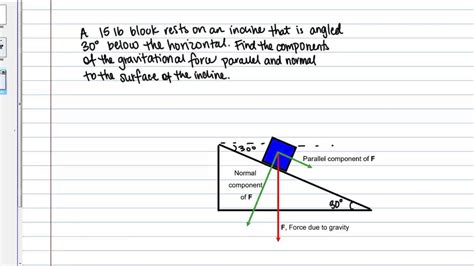 A 15 lb block rests on an incline that is angled
30° below the horizontal. Find the components
of the gravitational force parallel and normal
to the surface of the incline.
30°
Parallel component of F
Normal
component
of F
30°
F, Force due to gravity